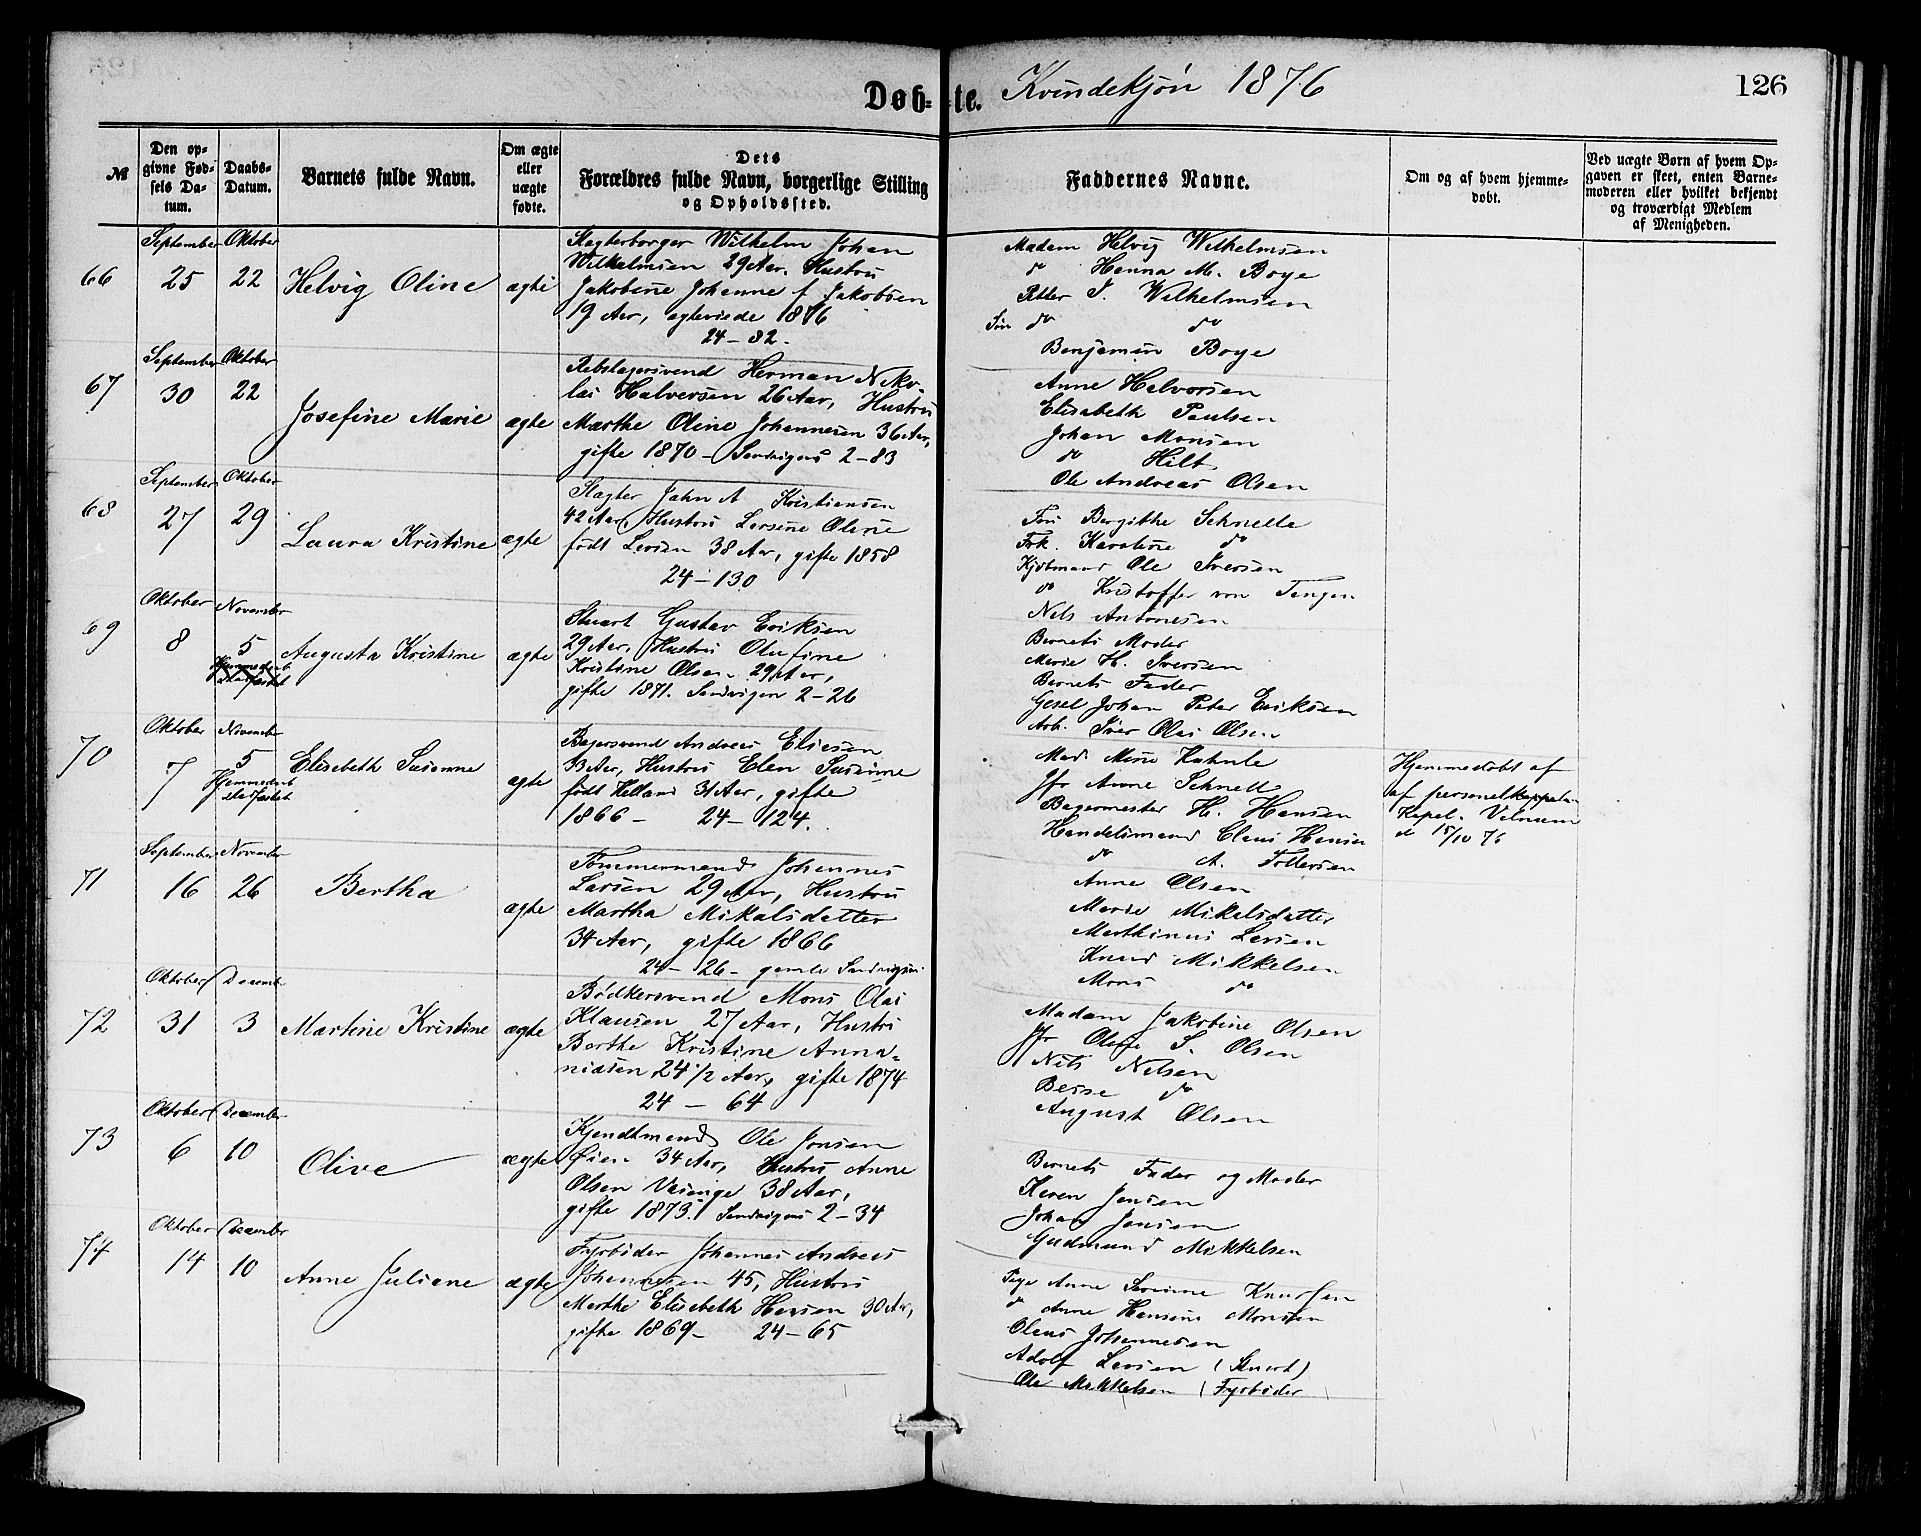 Døb-te. Kvindekjøn 1876
126
№
Den opgivne Fødsels Datum.
Daabs-Datum.
Barnets fulde Navn.
Om ægte eller uægte fødte.
Dets Forældres fulde Navn, borgerlige Stilling og Opholdssted.
Faddernes Navne.
Om og af hvem hjemmedøbt.
Ved uægte Børn af hvem Opgaven er skeet, enten Barnemoderen eller hvilket bekjendt og troværdigt Medlem af Menigheden.
66
September 25
Oktober 22
Helvig Oline
ægte
Slagterborger Wilhelm Johan
Wilhelmsen 29 Aar, Hustru
Jakobine Johanne f Jakobsen
19 Aar, egteviede 1876
24-82.
Madam Helvig Wilhelmsen
do Hanna M. Boye
Petter J. Wilhelmsen
do do
Benjamin Boye
67
September 30
Oktober 22
Josefine Marie
ægte
Rebslagersvend Herman Niko-
lai Halversen 26 Aar, Hustru
Marthe Oline Johannesen 36 Aar,
gifte 1870 - Sandvigen 2-83
Anne Halvorsen
Elisabeth Paulsen
Johan Monsen
do Hilt
Ole Andreas Olsen
68
September 27
Oktober 29
Laura Kristine
ægte
Slagter Jahn A Kristiansen
42 Aar, Hustru Larsine Oline
født Larsen 38 Aar, gifte 1858
24-130
Bergithe Schnelle
Frk. Karoline do
Kjøtmand Ole Iversen
do Kristoffer von Tangen
Nils Antonesen
69
Oktober 8
November 5
Augusta Kristine
ægte
Stuart Gustav Eriksen
29 Aar, Hustru Olufine
Kristine Olsen 29 Aar,
gifte 1871. Sandvigen 2-26
Barnets Moder
Marie H. Iversen
Barnets Fader
Gesel Johan Peter Eriksen
Arb. Iver Olai Olsen
70
Oktober 7
November 5
Hjemmedøbt
stadfæstet
Elisabeth Susanne
ægte
Bagersvend Andreas Eliesen
33 Aar, Hustru Elen Susanne
født Helland 31 Aar, gifte
1866 - 24-124.
Mad. Mine Kahnle
Jfr Anne Schnell
Bagermester H. Hansen
Handelsmand Claus Hansen
do A. Tollersen
Hjemmedøbt af
af personelkappelan
Kapel. Vilnum
d 15/10 76
71
September 16
November 26
Bertha
ægte
Tømmermand Johannes
Larsen 29 Aar, Hustru
Martha Mikalsdatter
34 Aar, gifte 1866
24-26- gamle Sandvigen
Anne Olsen
Marie Mikalsdatter
Marthinus Larsen
Knud Mikkelsen
Mons do
72
Oktober 31
December 3
Martine Kristine
ægte
Bødkersvend Mons Olai
Klausen 27 Aar, Hustru
Berthe Kristine Anna-
niasen 24 1/2 Aar, gifte 1874
24-64
Madam Jakobine Olsen
Jfr S. Olsen
Nils Nilsen
do
August Olsen
73
Oktober 6
December 10
Olive
ægte
Kjendtmand Ole Jonsen
Øien 34 Aar, Hustru Anne
Olsen 38 Aar,
gifte 1873. Sandvigen 2-34
Barnets Fader og Moder
Karen Jensen
Johan Jensen
Gudmund Mikkelsen
74
Oktober 14
December 10
Anne Juliane
ægte
Fyrbøder Johannes Andreas
Johannesen 45, Hustru
Marthe Elisabeth Hansen 30 Aar,
gifte 1869- 24-65
Pige Anne Severine Knudsen
do Anne Hansine Monsen
Olaus Johannesen
Adolf Larsen (Stuart)
Ole Mikkelsen (Fyrbøder)